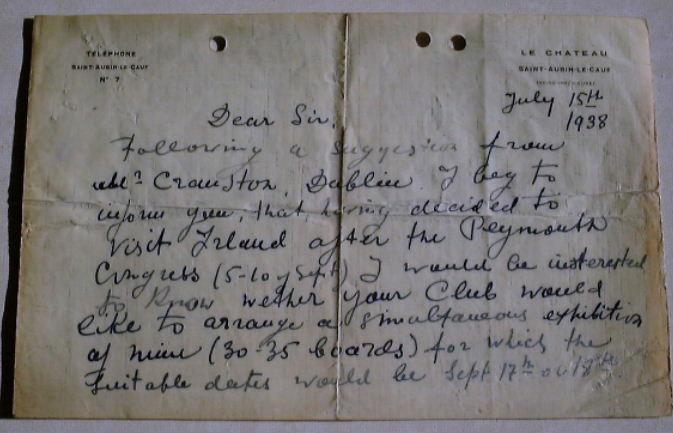 TÉLÉPHONE
SAINT-AUBIN-LE-CAUF
N° 7
LE CHATEAU
SAINT-AUBIN-LE-CAUF
July 15th
1938
Dear Sir,
Following a suggestion from
Cranston, Dublin I beg to
inform you, that, having decided to
visit Irland after the Peymouth
Congress (5-10 of Sept) I would be insterested
to Know wether your Club would
like to arrange a simultaneous exhibition
of mine (30-35 boards) for which the
suitable dates would be Sept 17th or 18th.